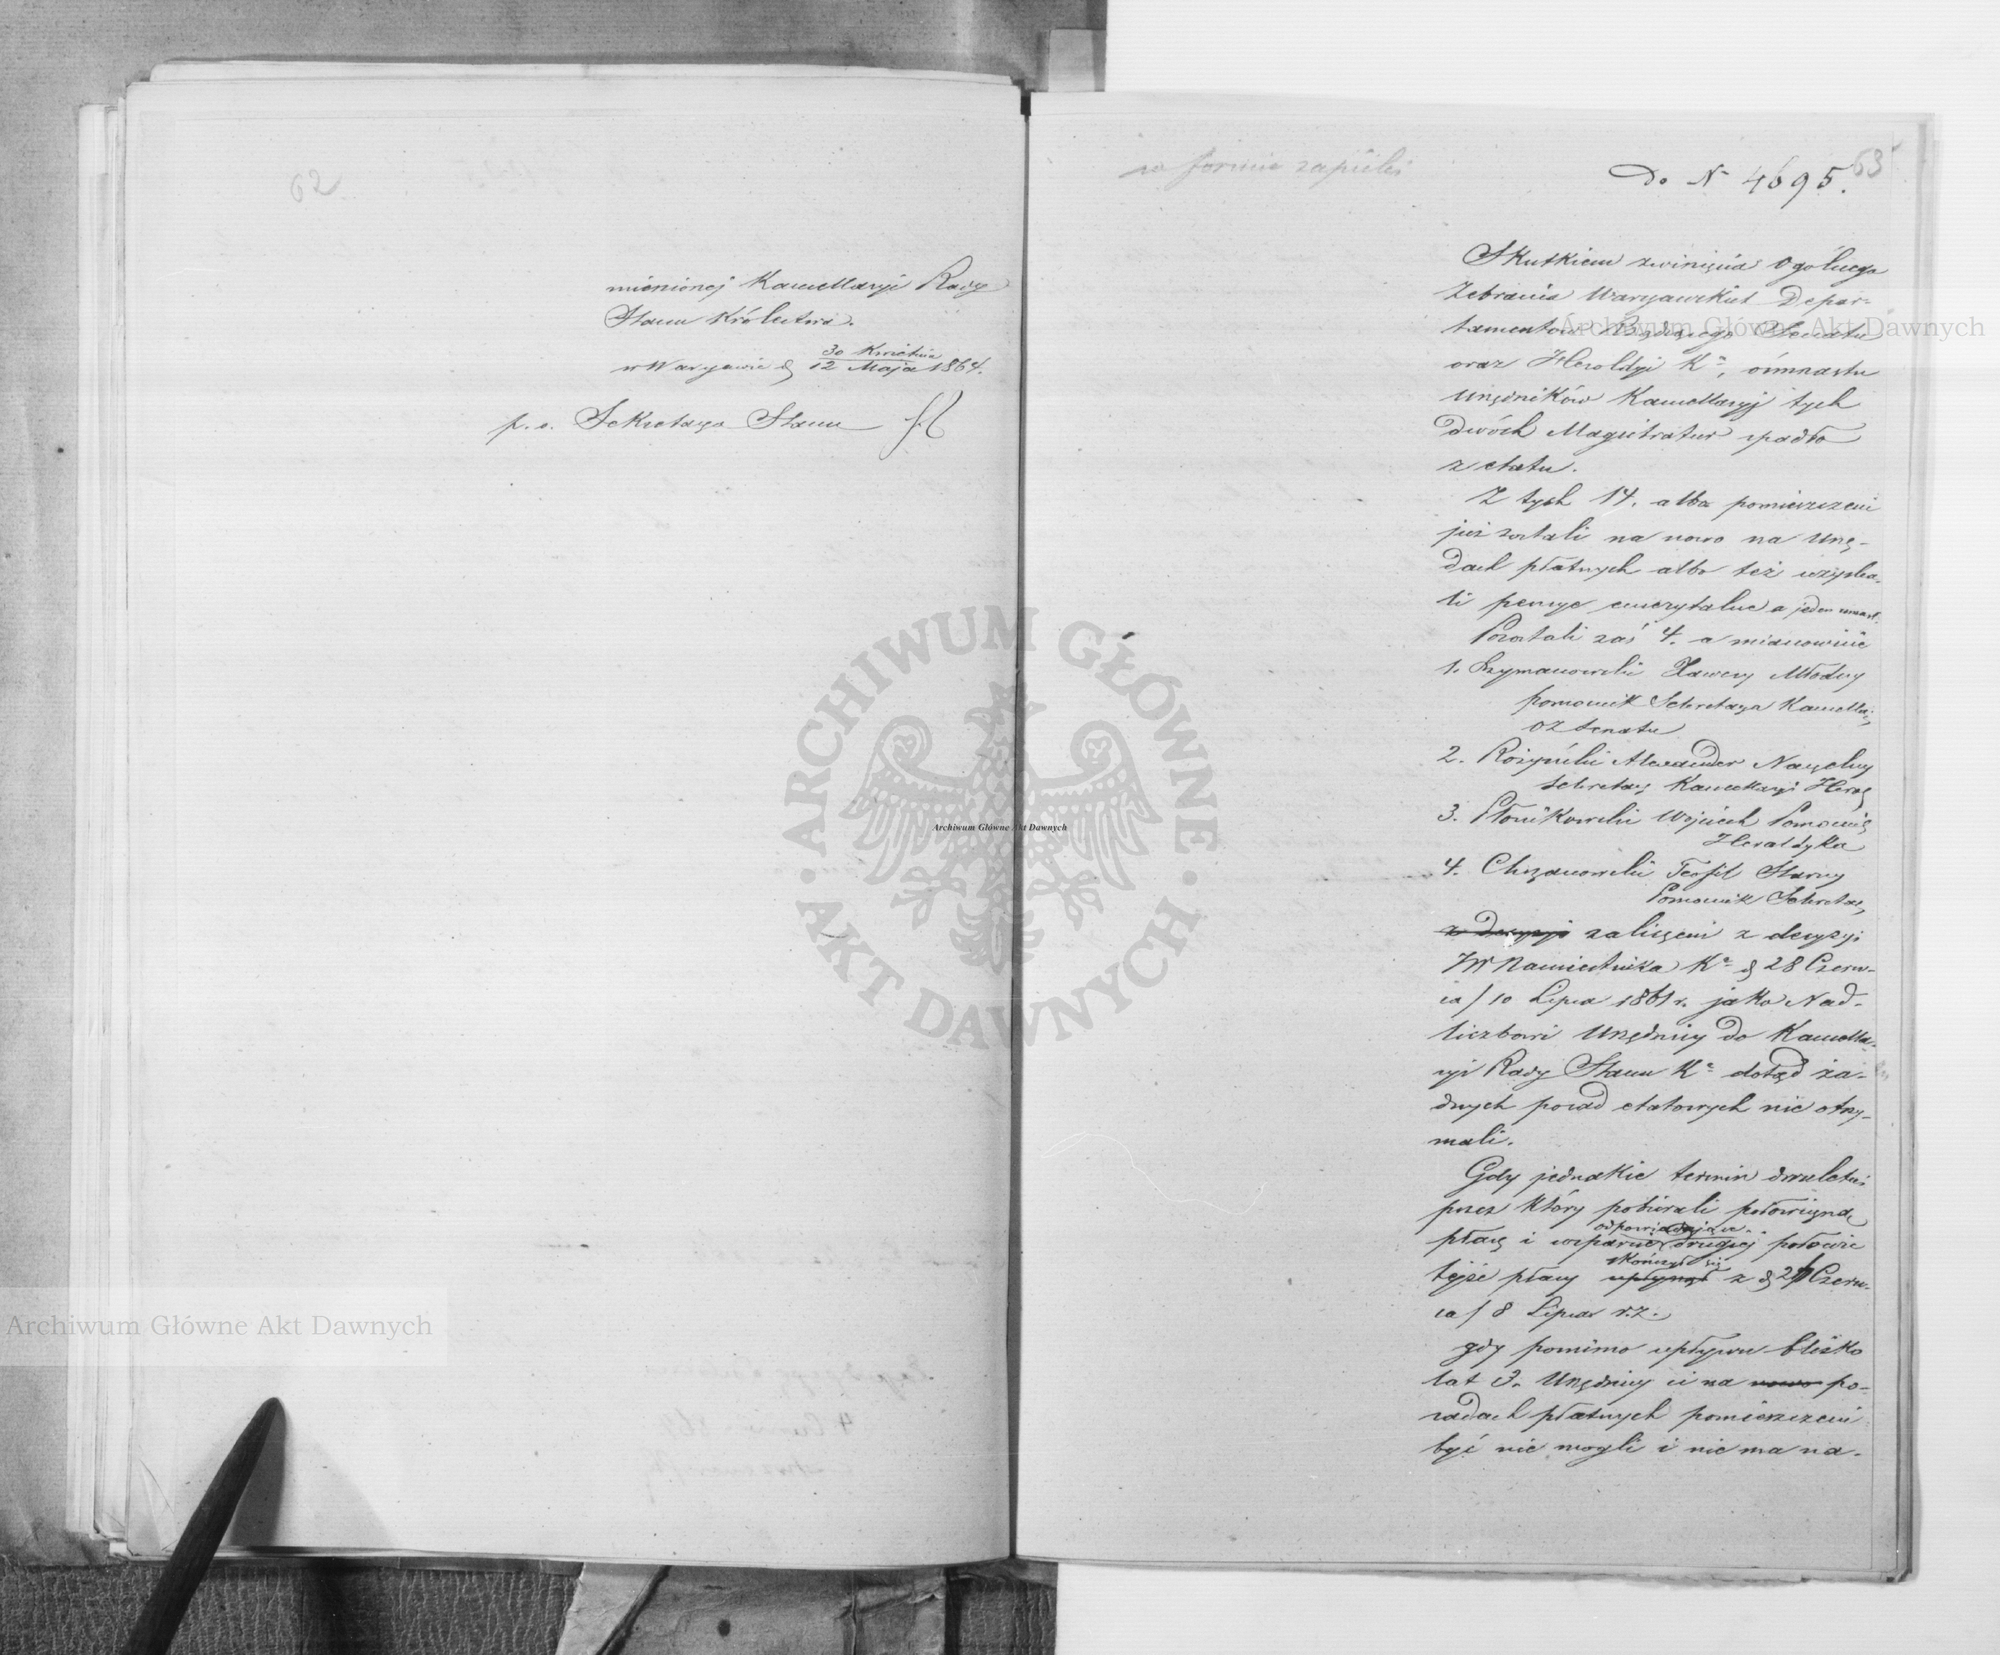 62
mienionej Kancellaryi Rady
Stanu Królestwa.
w Warszawie d 30 Kwietnia
12 Maja 1864.
p. o. Sekretarza Stanu
w formie zapiski
63
Do N 4695.
Skutkiem zwinięcia Ogólnego
Zebrania Warszawskich Depar-
tamentów Rządzącego Senatu
oraz Heroldyi Kª, ośmnastu
Urzędników Kancellaryj tych
dwóch Magistratur spadło
z etatu.
Z tych 14. albo pomieszczeni
już zostali na nowo na Urzę-
dach płatnych albo też uzyska-
li pensye emerytalne a jeden umarł.
Pozostali zaś 4. a mianowicie
1. Szymanowski Xawery Młodszy
pomocnik Sekretarza Kancellaryi
OZ Senatu
2. Alexander Naczelny
Sekretarz Kancellaryi Herol
3. Płonikowski Wojciech Pomocnik
Heraldyka
4. Chrzanowski Teofil Starszy
Pomocnik Sekretarza
z decyzji zaliczeni z decyzyi
JW Namiestnika Kª d 28 Czerw-
ca / 10 Lipca 1861 r. jako Nad-
liczbowi Urzędnicy do Kancella-
ryi Rady Stanu Kª dotąd ża-
dnych posad etatowych nie otrzy-
mali.
Gdy jednakże termin dwuletni
przez który pobierali połowiczną
odpowiadające
płacę i wsparcie drugiej połowie
skończył się
tejże płacy upłynął z d 26 Czerw-
ca / 8 Lipca r.z.
gdy pomimo upływu blisko
lat 3. Urzędnicy ci na nowo po-
sadach płatnych pomieszczeni
być nie mogli i nie ma na-
Archiwum Główne Akt Dawnych
Archiwum Główne Akt Dawnych
Archiwum Główne Akt Dawnych
ARCHIWUM GŁÓWNE · AKT DAWNYCH ·